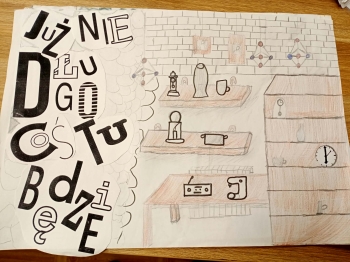 JUŻ NIE
DŁU
GO
COŚ TU
BĘdZiE